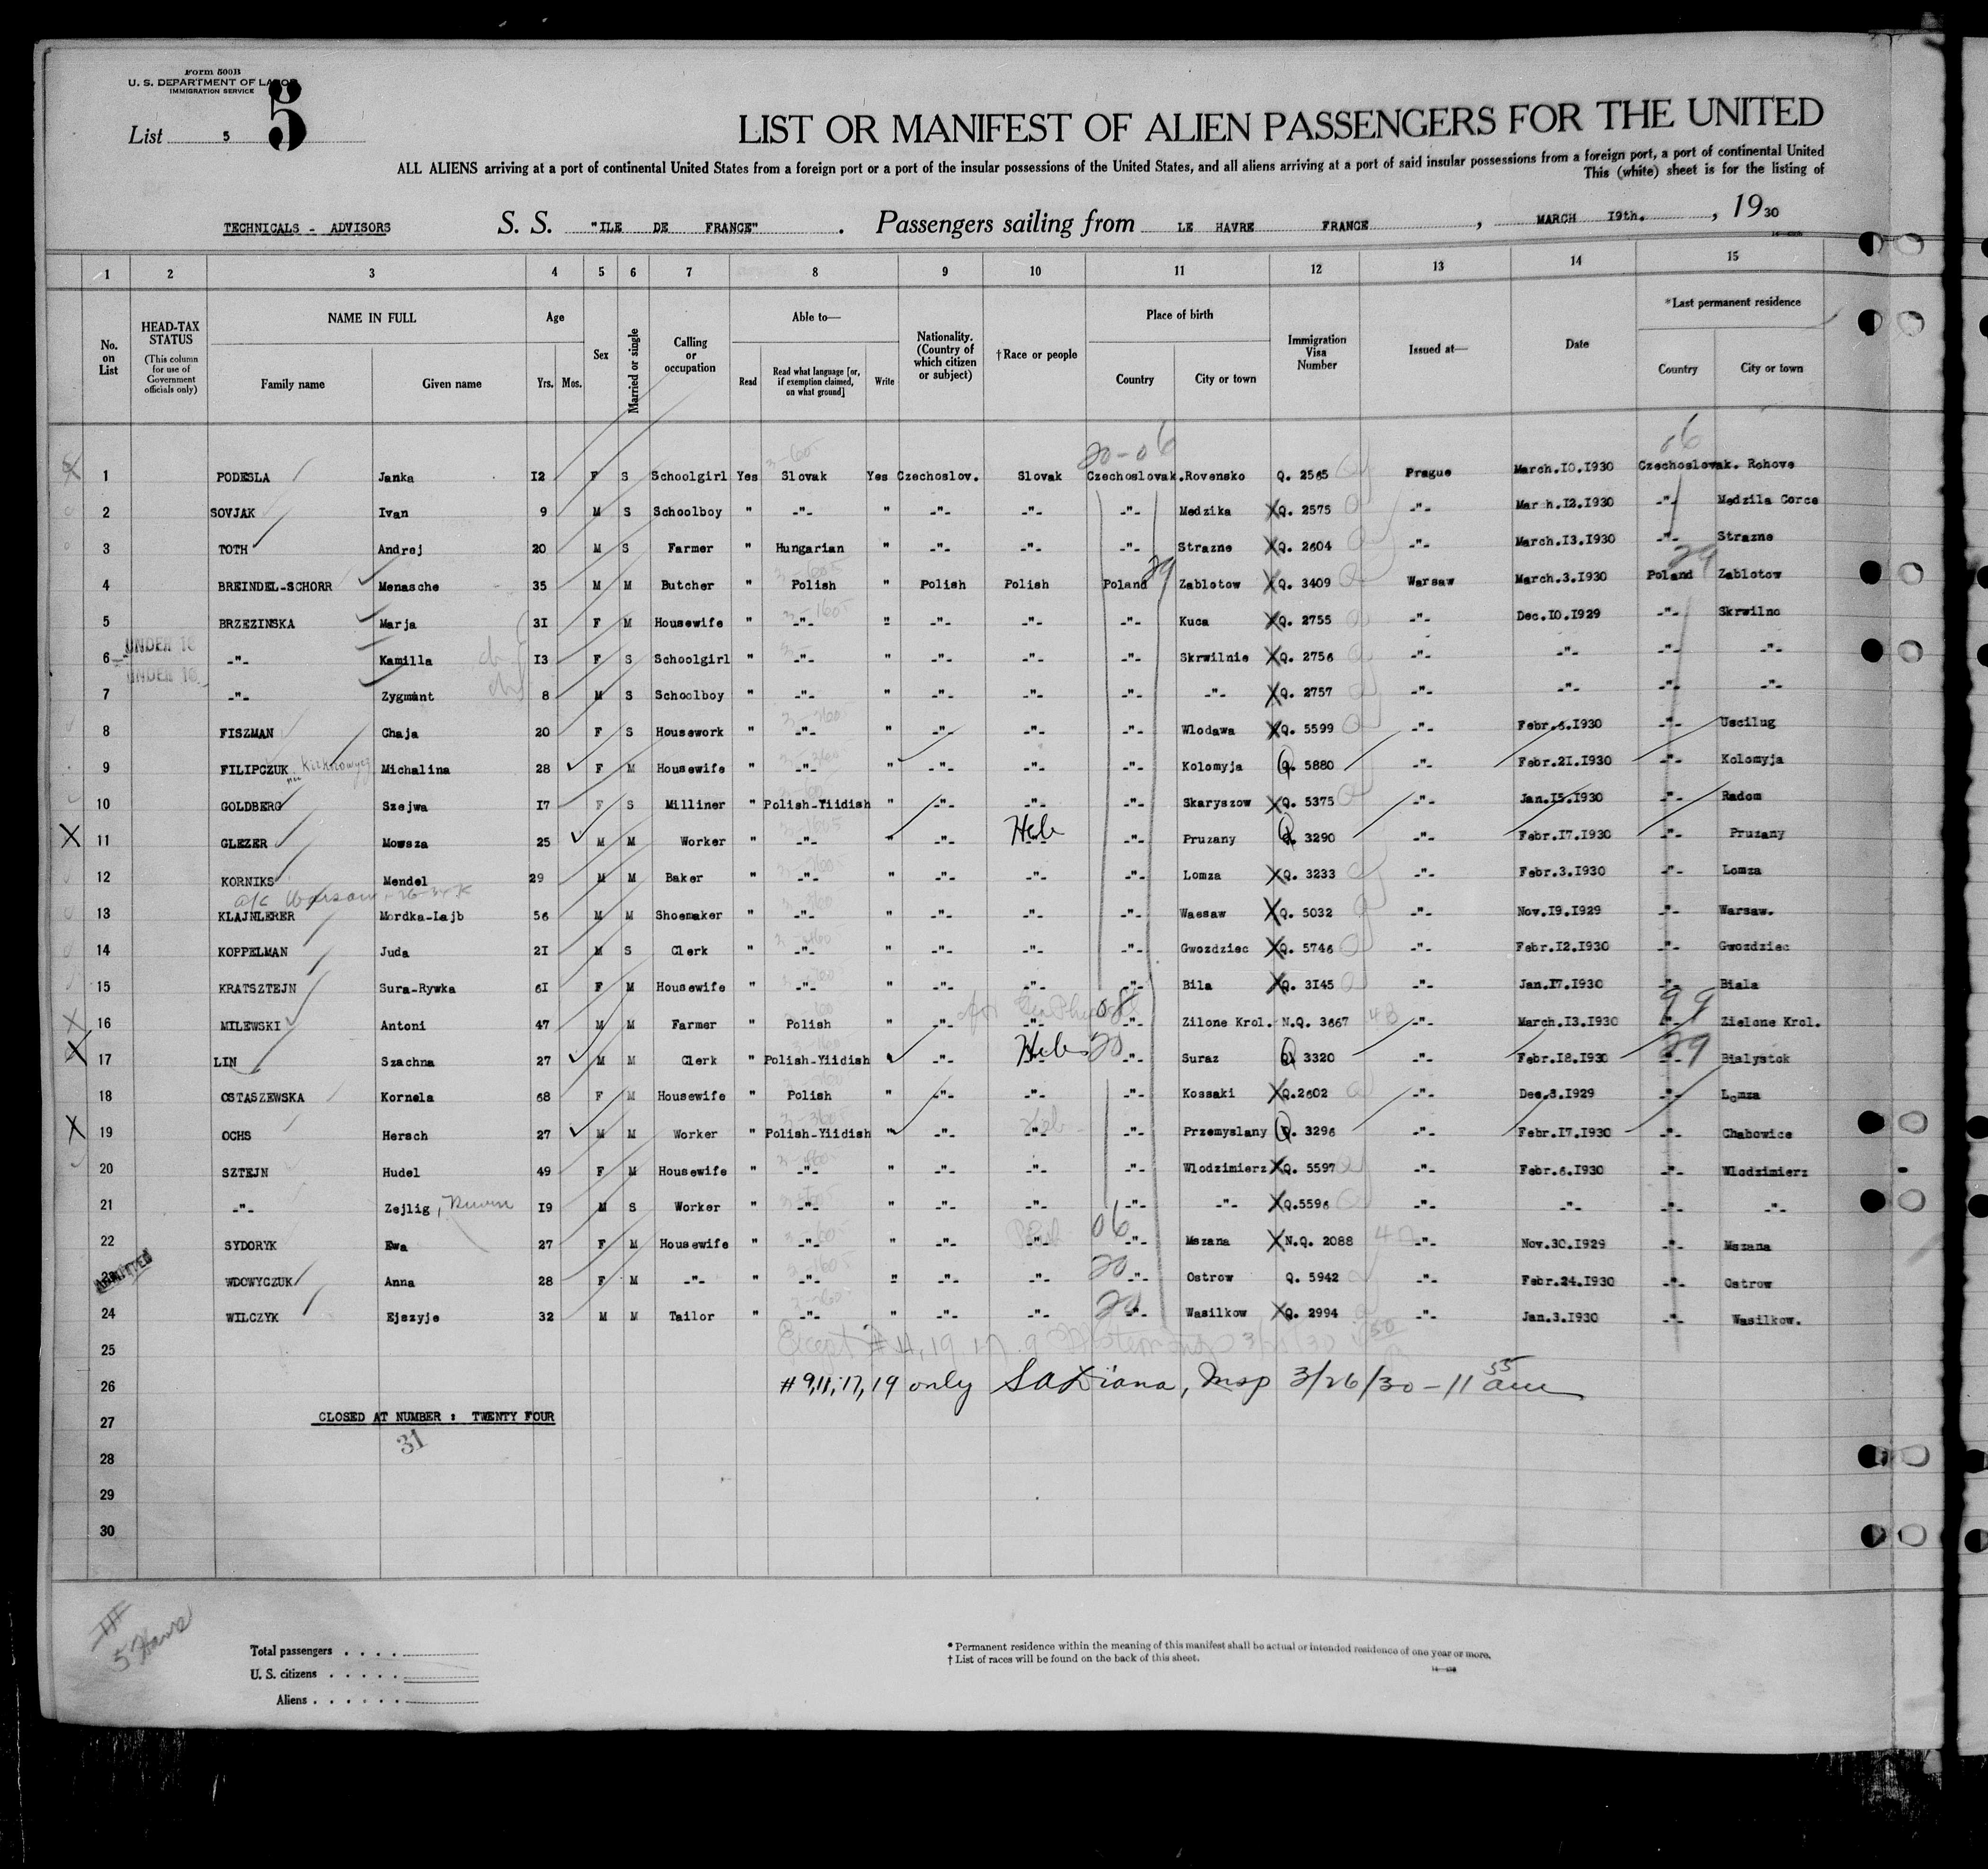 Form 500B
U. S. DEPARTMENT OF LABOR
IMMIGRATION SERVICE
List 5
5
LIST OR MANIFEST OF ALIEN PASSENGERS FOR THE UNITED
ALL ALIENS arriving at a port of continental United States from a foreign port or a port of the insular possessions of the United States, and all aliens arriving at a port of said insular possessions from a foreign port, a port of continental United
This (white) sheet is for the listing of
TECHNICALS - ADVISORS S. S. "ILE DE FRANCE" . Passengers sailing from LE HAVRE FRANCE , MARCH 19th. , 1930
1 2 3 4 5 6 7 8 9 10 11 12 13 14 15
No. on List
HEAD-TAX STATUS (This column for use of Government officials only)
NAME IN FULL
Family name Given name
Age
Yrs. Mos.
Sex
Married or single
Calling or occupation
Able to—
Read Read what language [or, if exemption claimed, on what ground] Write
Nationality. (Country of which citizen or subject)
†Race or people
Place of birth
Country City or town
Immigration Visa Number
Issued at—
Date
*Last permanent residence
Country City or town
20-06 06
1 PODESLA Janka I2 F S Schoolgirl Yes Slovak Yes Czechoslov. Slovak Czechoslovak. Rovensko Q. 2565 Prague March.I0.I930 Czechoslovak. Rohove
2 SOVJAK Ivan 9 M S Schoolboy " -"- " -"- -"- -"- Medzika Q. 2575 -"- Mar h.I2.I930 -"- Medzila Corce
3 TOTH Andrej 20 M S Farmer " Hungarian " -"- -"- -"- Strazne Q. 2604 -"- March.I3.I930 -"- Strazne
4 BREINDEL-SCHORR Menasche 35 M M Butcher " Polish " Polish Polish Poland 29 Zablotow Q. 3409 Warsaw March.3.I930 Poland 29 Zablotow
5 BRZEZINSKA Marja 3I F M Housewife " -"- " -"- -"- -"- Kuca Q. 2755 -"- Dec.I0.I929 -"- Skrwilno
UNDER 16
6 -"- Kamilla I3 F S Schoolgirl " -"- " -"- -"- -"- Skrwilnie Q. 2756 -"- -"- -"- -"-
UNDER 16
7 -"- Zygmant 8 M S Schoolboy " -"- " -"- -"- -"- -"- Q. 2757 -"- -"- -"- -"-
8 FISZMAN Chaja 20 F S Housework " -"- " -"- -"- -"- Wlodawa Q. 5599 -"- Febr.6.I930 -"- Uscilug
9 FILIPCZUK Michalina 28 F M Housewife " -"- " -"- -"- -"- Kolomyja Q. 5880 -"- Febr.2I.I930 -"- Kolomyja
10 GOLDBERG Szejwa I7 F S Milliner " Polish-Yiidish " -"- -"- -"- Skaryszow Q. 5375 -"- Jan.I5.I930 -"- Radom
11 GLEZER Mowsza 25 M M Worker " -"- " -"- Heb -"- Pruzany Q. 3290 -"- Febr.I7.I930 -"- Pruzany
12 KORNIKS Mendel 29 M M Baker " -"- " -"- -"- -"- Lomza Q. 3233 -"- Febr.3.I930 -"- Lomza
13 KLAJNLERER Mordka-Lajb 56 M M Shoemaker " -"- " -"- -"- -"- Waesaw Q. 5032 -"- Nov.I9.I929 -"- Warsaw.
14 KOPPELMAN Juda 2I M S Clerk " -"- " -"- -"- -"- Gwozdziec Q. 5746 -"- Febr.I2.I930 -"- Gwozdziec
15 KRATSZTEJN Sura-Rywka 6I F M Housewife " -"- " -"- -"- -"- Bila Q. 3I45 -"- Jan.I7.I930 -"- Biala
16 MILEWSKI Antoni 47 M M Farmer " Polish " -"- -"- 08 -"- Zilone Krol. N.Q. 3667 -"- March.I3.I930 -"- Zielone Krol.
17 LIN Szachna 27 M M Clerk " Polish-Yiidish " -"- Heb 20 -"- Suraz Q. 3320 -"- Febr.I8.I930 29 -"- Bialystok
18 OSTASZEWSKA Kornela 68 F M Housewife " Polish " -"- -"- -"- Kossaki Q.2602 -"- Dec.3.I929 -"- Lomza
19 OCHS Hersch 27 M M Worker " Polish-Yiidish " -"- Heb -"- Przemyslany Q. 3296 -"- Febr.I7.I930 -"- Chabowice
20 SZTEJN Hudel 49 F M Housewife " -"- " -"- -"- -"- Wlodzimierz Q. 5597 -"- Febr.6.I930 -"- Wlodzimierz
21 -"- Zejlig, I9 M S Worker " -"- " -"- -"- -"- -"- Q.5596 -"- -"- -"- -"-
22 SYDORYK Ewa 27 F M Housewife " -"- " -"- -"- 06 -"- Mszana N.Q. 2088 -"- Nov.30.I929 -"- Mszana
ADMITTED
23 WDOWYCZUK Anna 28 F M -"- " -"- " -"- -"- 20 -"- Ostrow Q. 5942 -"- Febr.24.I930 -"- Ostrow
24 WILCZYK Ejszyje 32 M M Tailor " -"- " -"- -"- 20 -"- Wasilkow Q. 2994 -"- Jan.3.I930 -"- Wasilkow.
25
26 #9,11,17,19 only SADiana, Insp 3/26/30 - 11 55 am
27 CLOSED AT NUMBER : TWENTY FOUR
31
28
29
30
Total passengers . . . .
U. S. citizens . . . . .
Aliens . . . . . .
* Permanent residence within the meaning of this manifest shall be actual or intended residence of one year or more.
† List of races will be found on the back of this sheet.